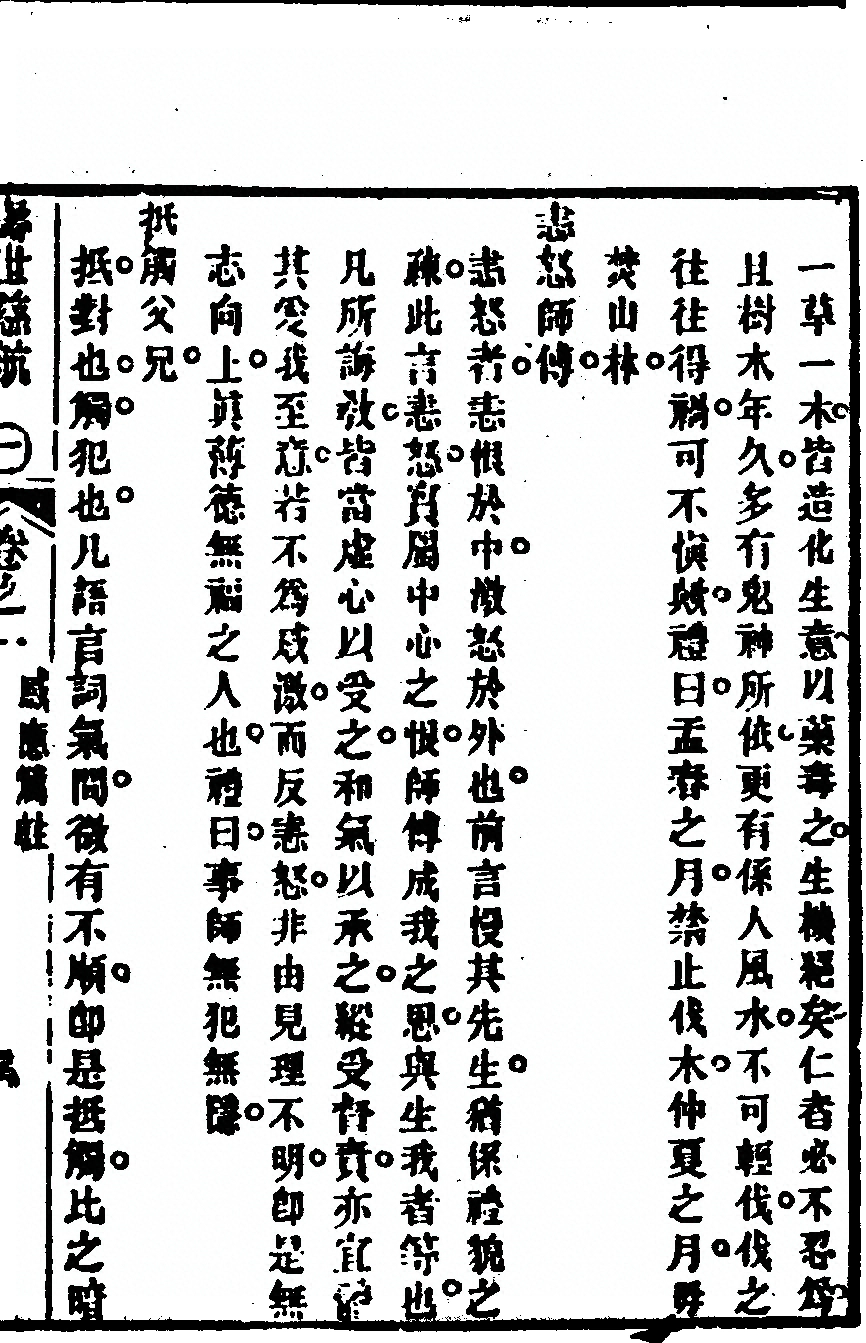 一草一木皆造化生意以藥毒之生機絕矣仁者必不忍爲
且樹木年久多有鬼神所依更有係人風水不可輕伐伐之
往往得禍可不愼歟禮曰孟春之月禁止伐木仲夏之月毋
焚山林
恚怒師傅
恚怒者恚恨於中激怒於外也前言慢其先生猶係禮貌之
疎此言恚怒實屬中心之恨師傅成我之恩與生我者等也
凡所誨敎皆當虛心以受之和氣以承之縱受督責亦宜
其愛我至意若不爲感激而反恚怒非由見理不明卽是無
志向上眞薄德無福之人也禮曰事師無犯無隱
抵觸父兄
抵對也觸犯也凡語言詞氣間微有不順卽是抵觸比之暗
世慈航
一
卷之一
感應篇註